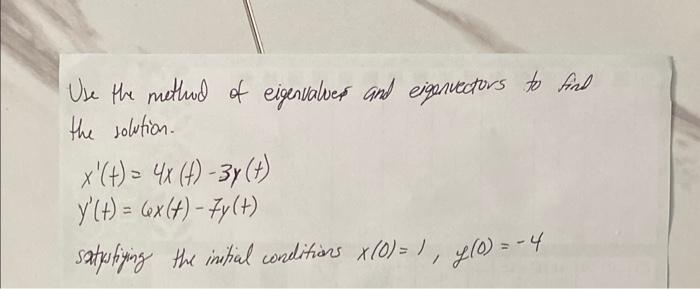 Use the method of eigenvalues and eigenvectors to find
the solution.
x'(t) = 4x(t) - 3y(t)
y'(t) = 6x(t) - 7y(t)
satysfiying the initial conditions x(0) = 1, y(0) = -4